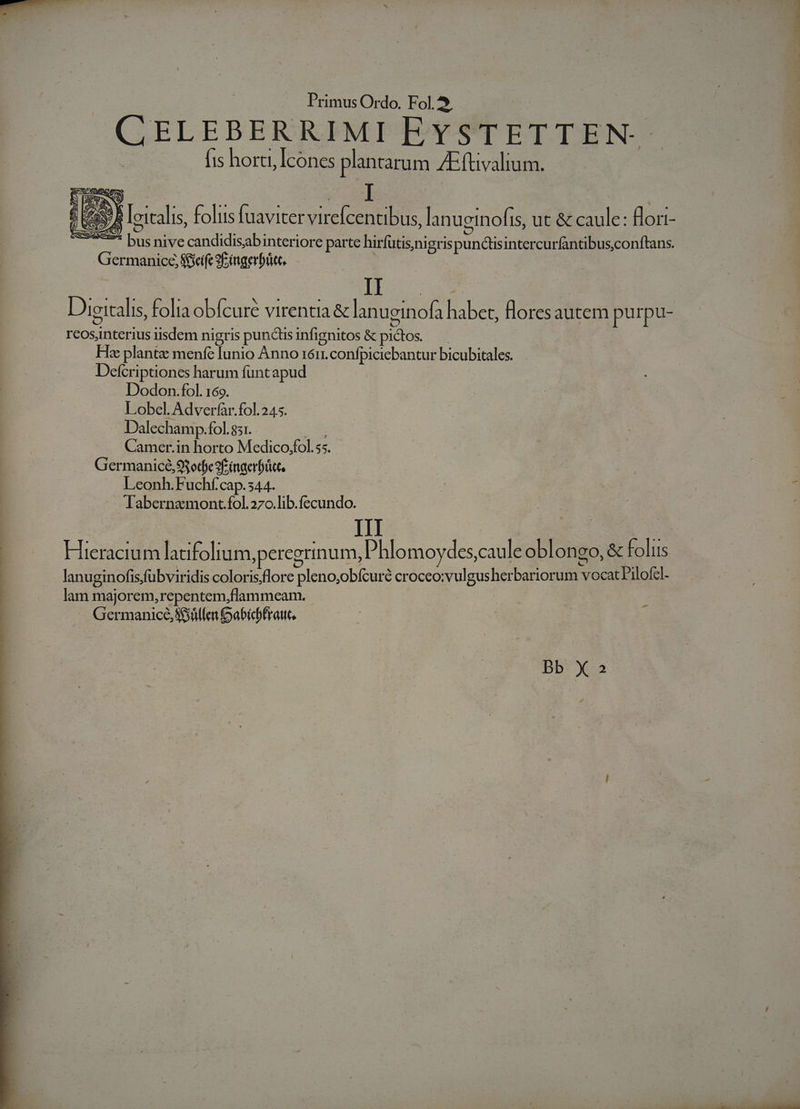 Primus Ordo. Fol. 2.
CELEBERRIMI EYSTETTEN-
ſis horti, Icones plantarum Æſtivalium.
I
DIgitalis, foliis ſuaviter vireſcentibus, lanuginoſis, ut & caule: flori-
bus nive candidis, ab interiore parte hirſutis, nigris punctis intercurſantibus, conſtans.
Germanicè, Weiſe Fingerhütt.
II
Digitalis, folia obſcurè virentia & lanuginoſa habet, flores autem purpu-
reos, interius iisdem nigris punctis inſignitos & pictos.
Hæ plantæ menſe Iunio Anno 1611. conſpiciebantur bicubitales.
Deſcriptiones harum ſunt apud
Dodon. fol. 169.
Lobel. Adverſar. fol. 245.
Dalechamp. fol. 831.
Camer. in horto Medico, fol. 55.
Germanicè, Rothe Fingerhütt.
Leonh. Fuchſ. cap. 344.
Tabernæmont. fol. 270. lib. ſecundo.
III
Hieracium latifolium, peregrinum, Phlomoydes, caule oblongo, & foliis
lanuginoſis, ſubviridis coloris, flore pleno, obſcurè croceo: vulgus herbariorum vocat Piloſel-
lam majorem, repentem, flammeam.
Germanicè, Wüllen Habichkraut.
Bb X 2